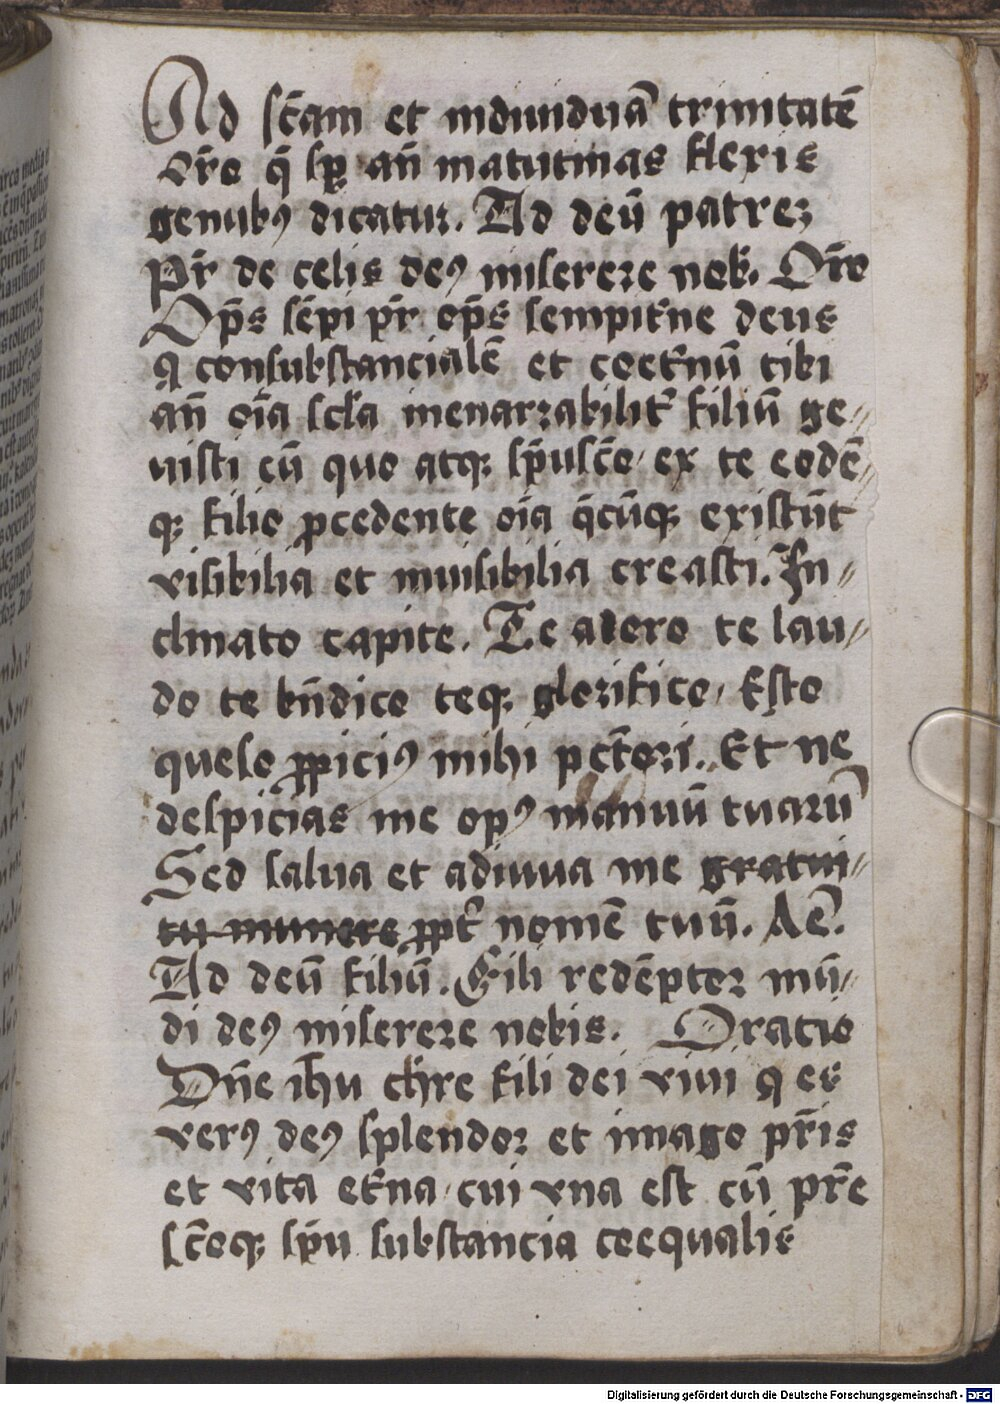 Ad sc̄am et indiuiduā trinitatē
or̄o q̄ sp̲ an̄ matutinas flexis
genubꝰ dicatur. Ad deū patreꝫ
Pr̄ de celis deꝰ miserere nob̄. Or̄o
Op̄s sēpi pr̄ op̄s sempit̄ne deus
qͥ consubstancialē et coet̄nū tibi
an̄ oīa scl̄a inenarrabilit᷑ filiū ge〃
nuisti cū quo atqꝫ sp̄usc̄o ex te eodē〃
qꝫ filio ꝓcedente oīa q̄cūqꝫ existūt
visibilia et inuisibilia creasti. In〃
clinato capite. Te adoro te lau〃
do te bn̄dico teqꝫ glorifico, Esto
queso ꝓpiciꝰ mihi pctōri. Et ne
despicias me opꝰ manuū tuarū
Sed salua et adiuua me gratui〃
tu munere ꝓpt᷑ nomē tuū. Am̄e.
Ad deū filiū. Fili redēptor mū〃
di deꝰ miserere nobis. Oratio
Dn̄e ih̄u ch̄re fili dei viui qͥ es
verꝰ deꝰ splendor et imago pr̄is
et vita et̄na cui vna est cū pr̄e
sc̄oqꝫ sp̄u substancia coequalis
Digitalisierung gefördert durch die Deutsche Forschungsgemeinschaft - DFG